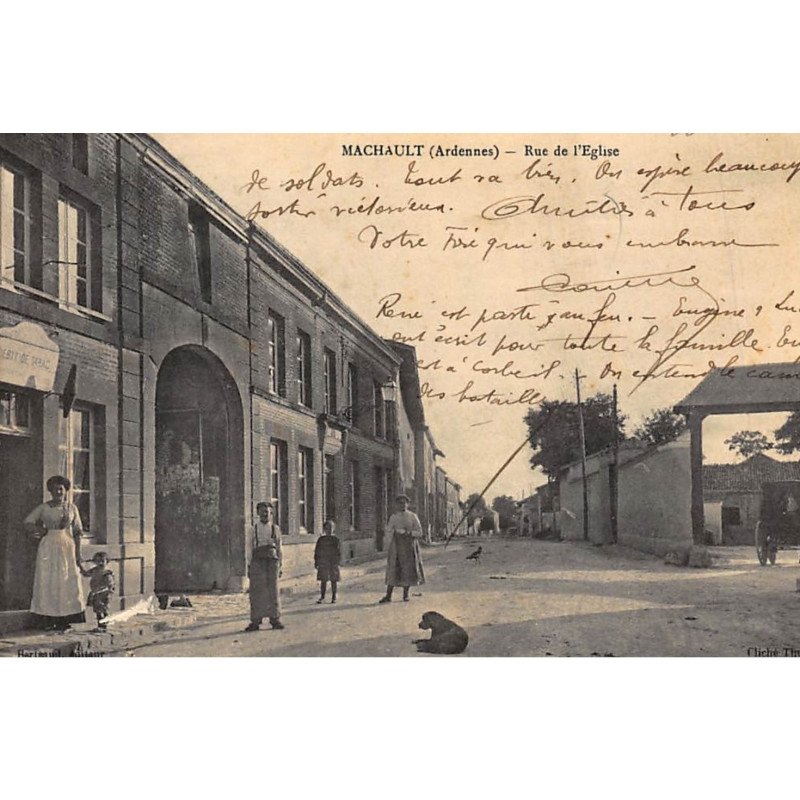 MACHAULT (Ardennes) — Rue de l'Eglise
de soldats. Tout va bien. On espère beaucoup
sortir victorieux. Amitiés à Tous
Votre qui vous embrasse
René est parti
ont écrit pour toute la famille.
est à Corbeil. On entend le
des batailles
DEBIT DE TABAC
éditeur
Cliché